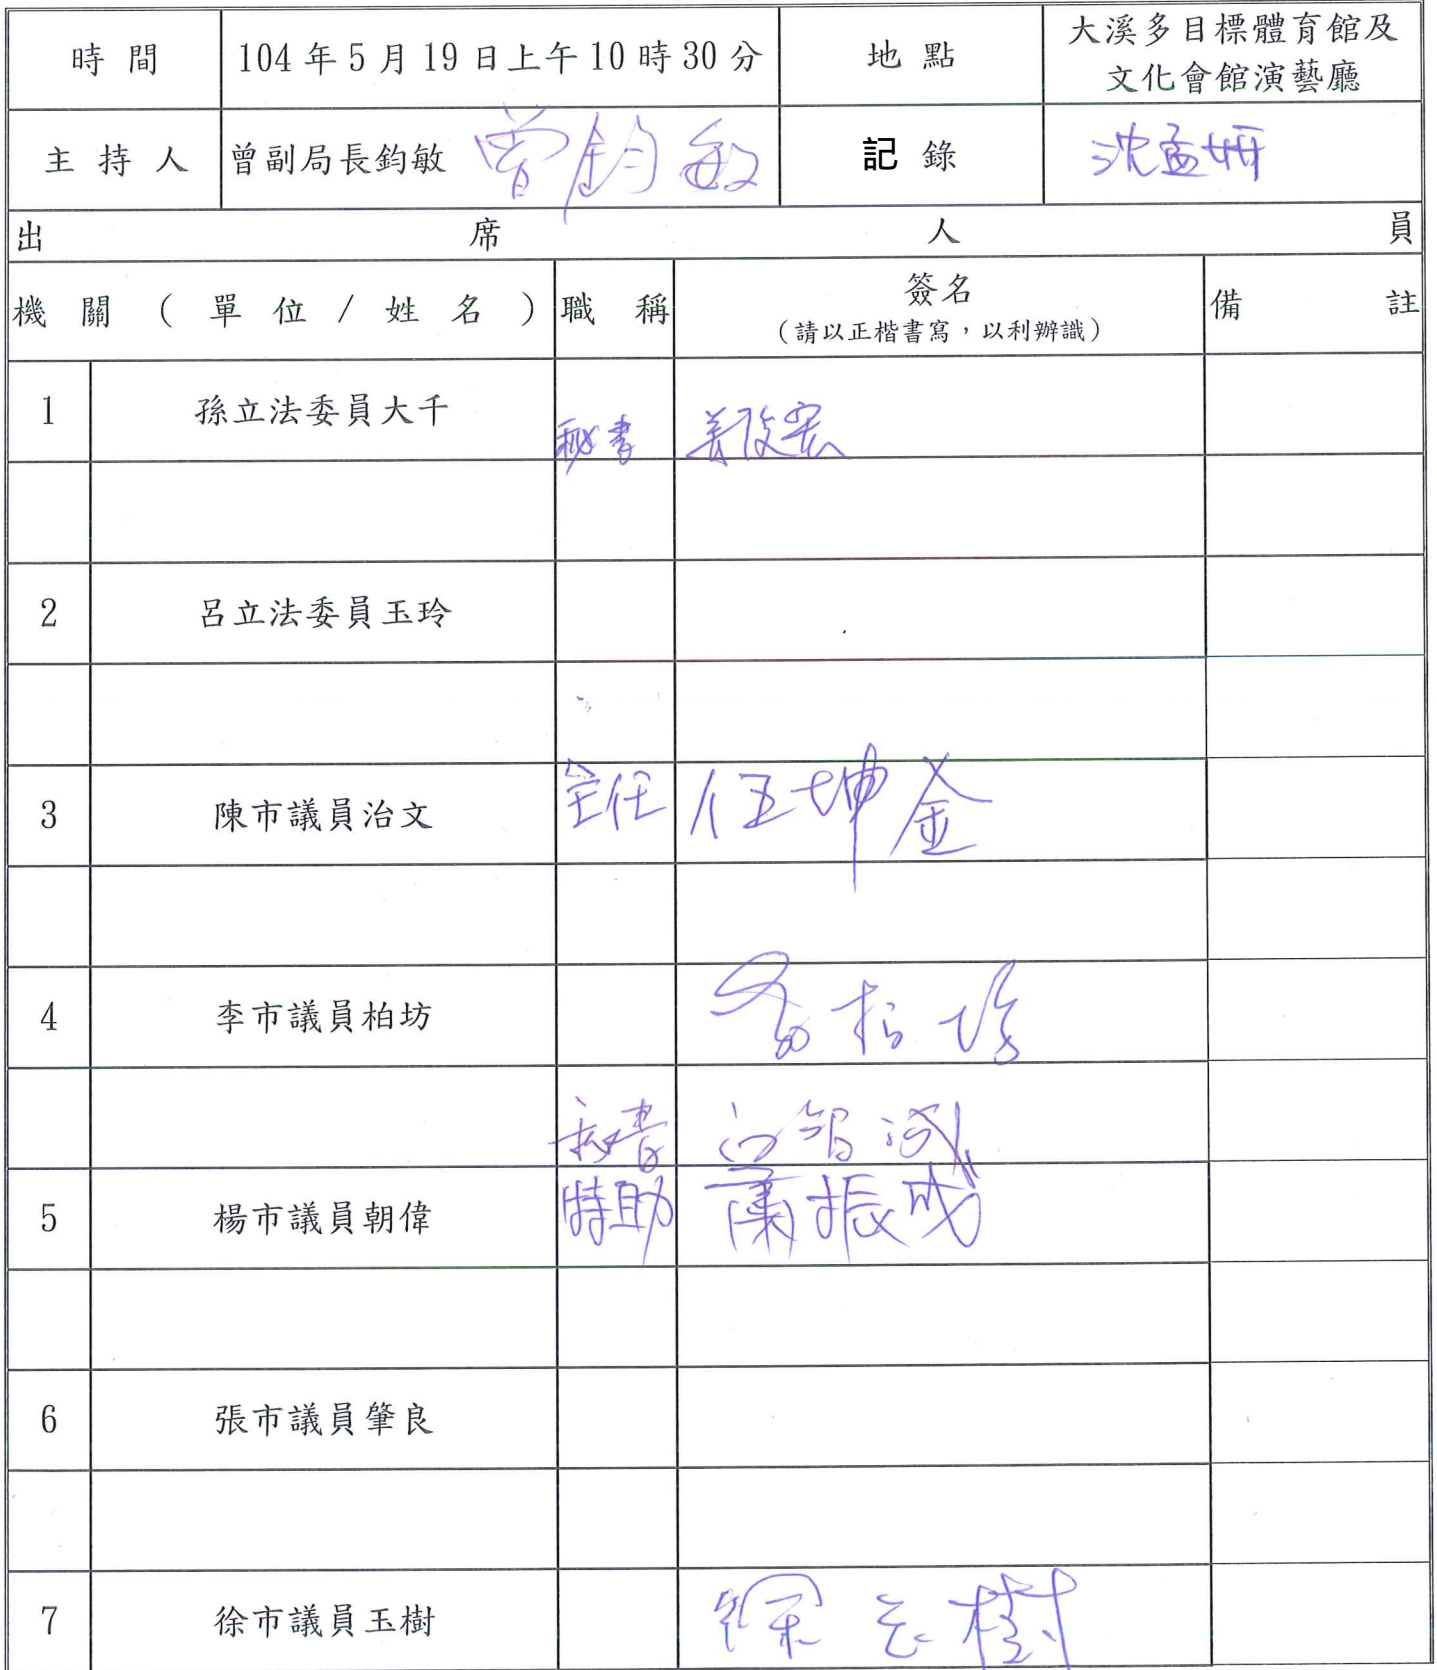 時間 104年5月19日上午10時30分 地點 大溪多目標體育館及
文化會館演藝廳
主持人 曾副局長鈞敏 曾鈞敏 記錄 沈孟姍
出席人員
機關(單位/姓名) 職稱 簽名 備註
(請以正楷書寫,以利辦識)
1 孫立法委員大千 秘書
2 呂立法委員玉玲
3 陳市議員治文 主任 伍坤金
4 李市議員柏坊 李柏坊
秘書
5 楊市議員朝偉 特助 蕭振成
6 張市議員肇良
7 徐市議員玉樹 徐玉樹